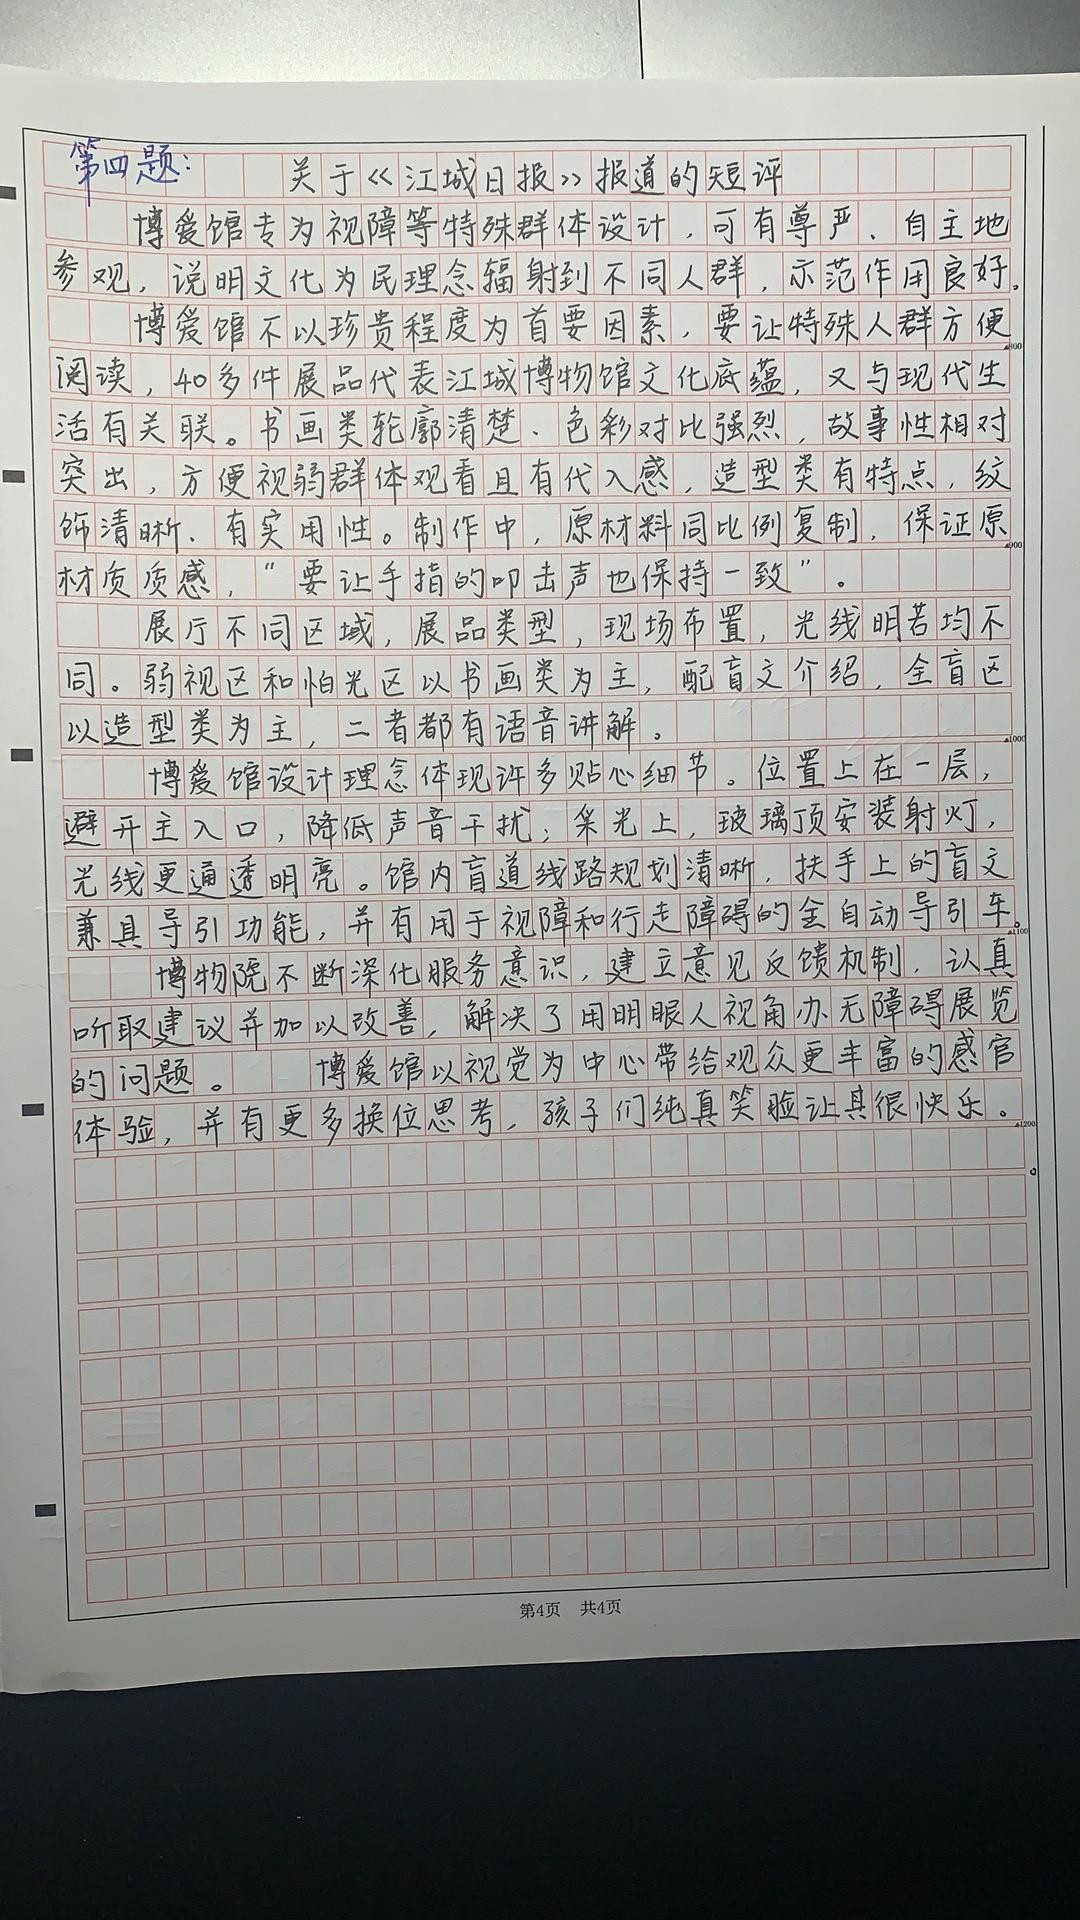 第四题：
关于《江城日报》报道的短评
博爱馆专为视障等特殊群体设计，可有尊严、自主地
参观，说明文化为民理念辐射到不同人群，示范作用良好。
博爱馆不以珍贵程度为首要因素，要让特殊人群方便
阅读，40多件展品代表江城博物馆文化底蕴，又与现代生
800
活有关联。书画类轮廓清楚、色彩对比强烈，故事性相对
突出，方便视弱群体观看且有代入感，造型类有特点，纹
饰清晰、有实用性。制作中，原材料同比例复制，保证原
900
材质质感，“要让手指的叩击声也保持一致”。
展厅不同区域，展品类型，现场布置，光线明若均不
同。弱视区和怕光区以书画类为主，配盲文介绍，全盲区
以造型类为主，二者都有语音讲解。
1000
博爱馆设计理念体现许多贴心细节。位置上在一层，
避开主入口，降低声音干扰；采光上，玻璃顶安装射灯，
光线更通透明亮。馆内盲道线路规划清晰，扶手上的盲文
兼具导引功能，并有用于视障和行走障碍的全自动导引车。
1100
博物院不断深化服务意识，建立意见反馈机制，认真
听取建议并加以改善，解决了用明眼人视角办无障碍展览
的问题。 博爱馆以视觉为中心带给观众更丰富的感官
体验，并有更多换位思考，孩子们纯真笑脸让其很快乐。
1200
第4页 共4页